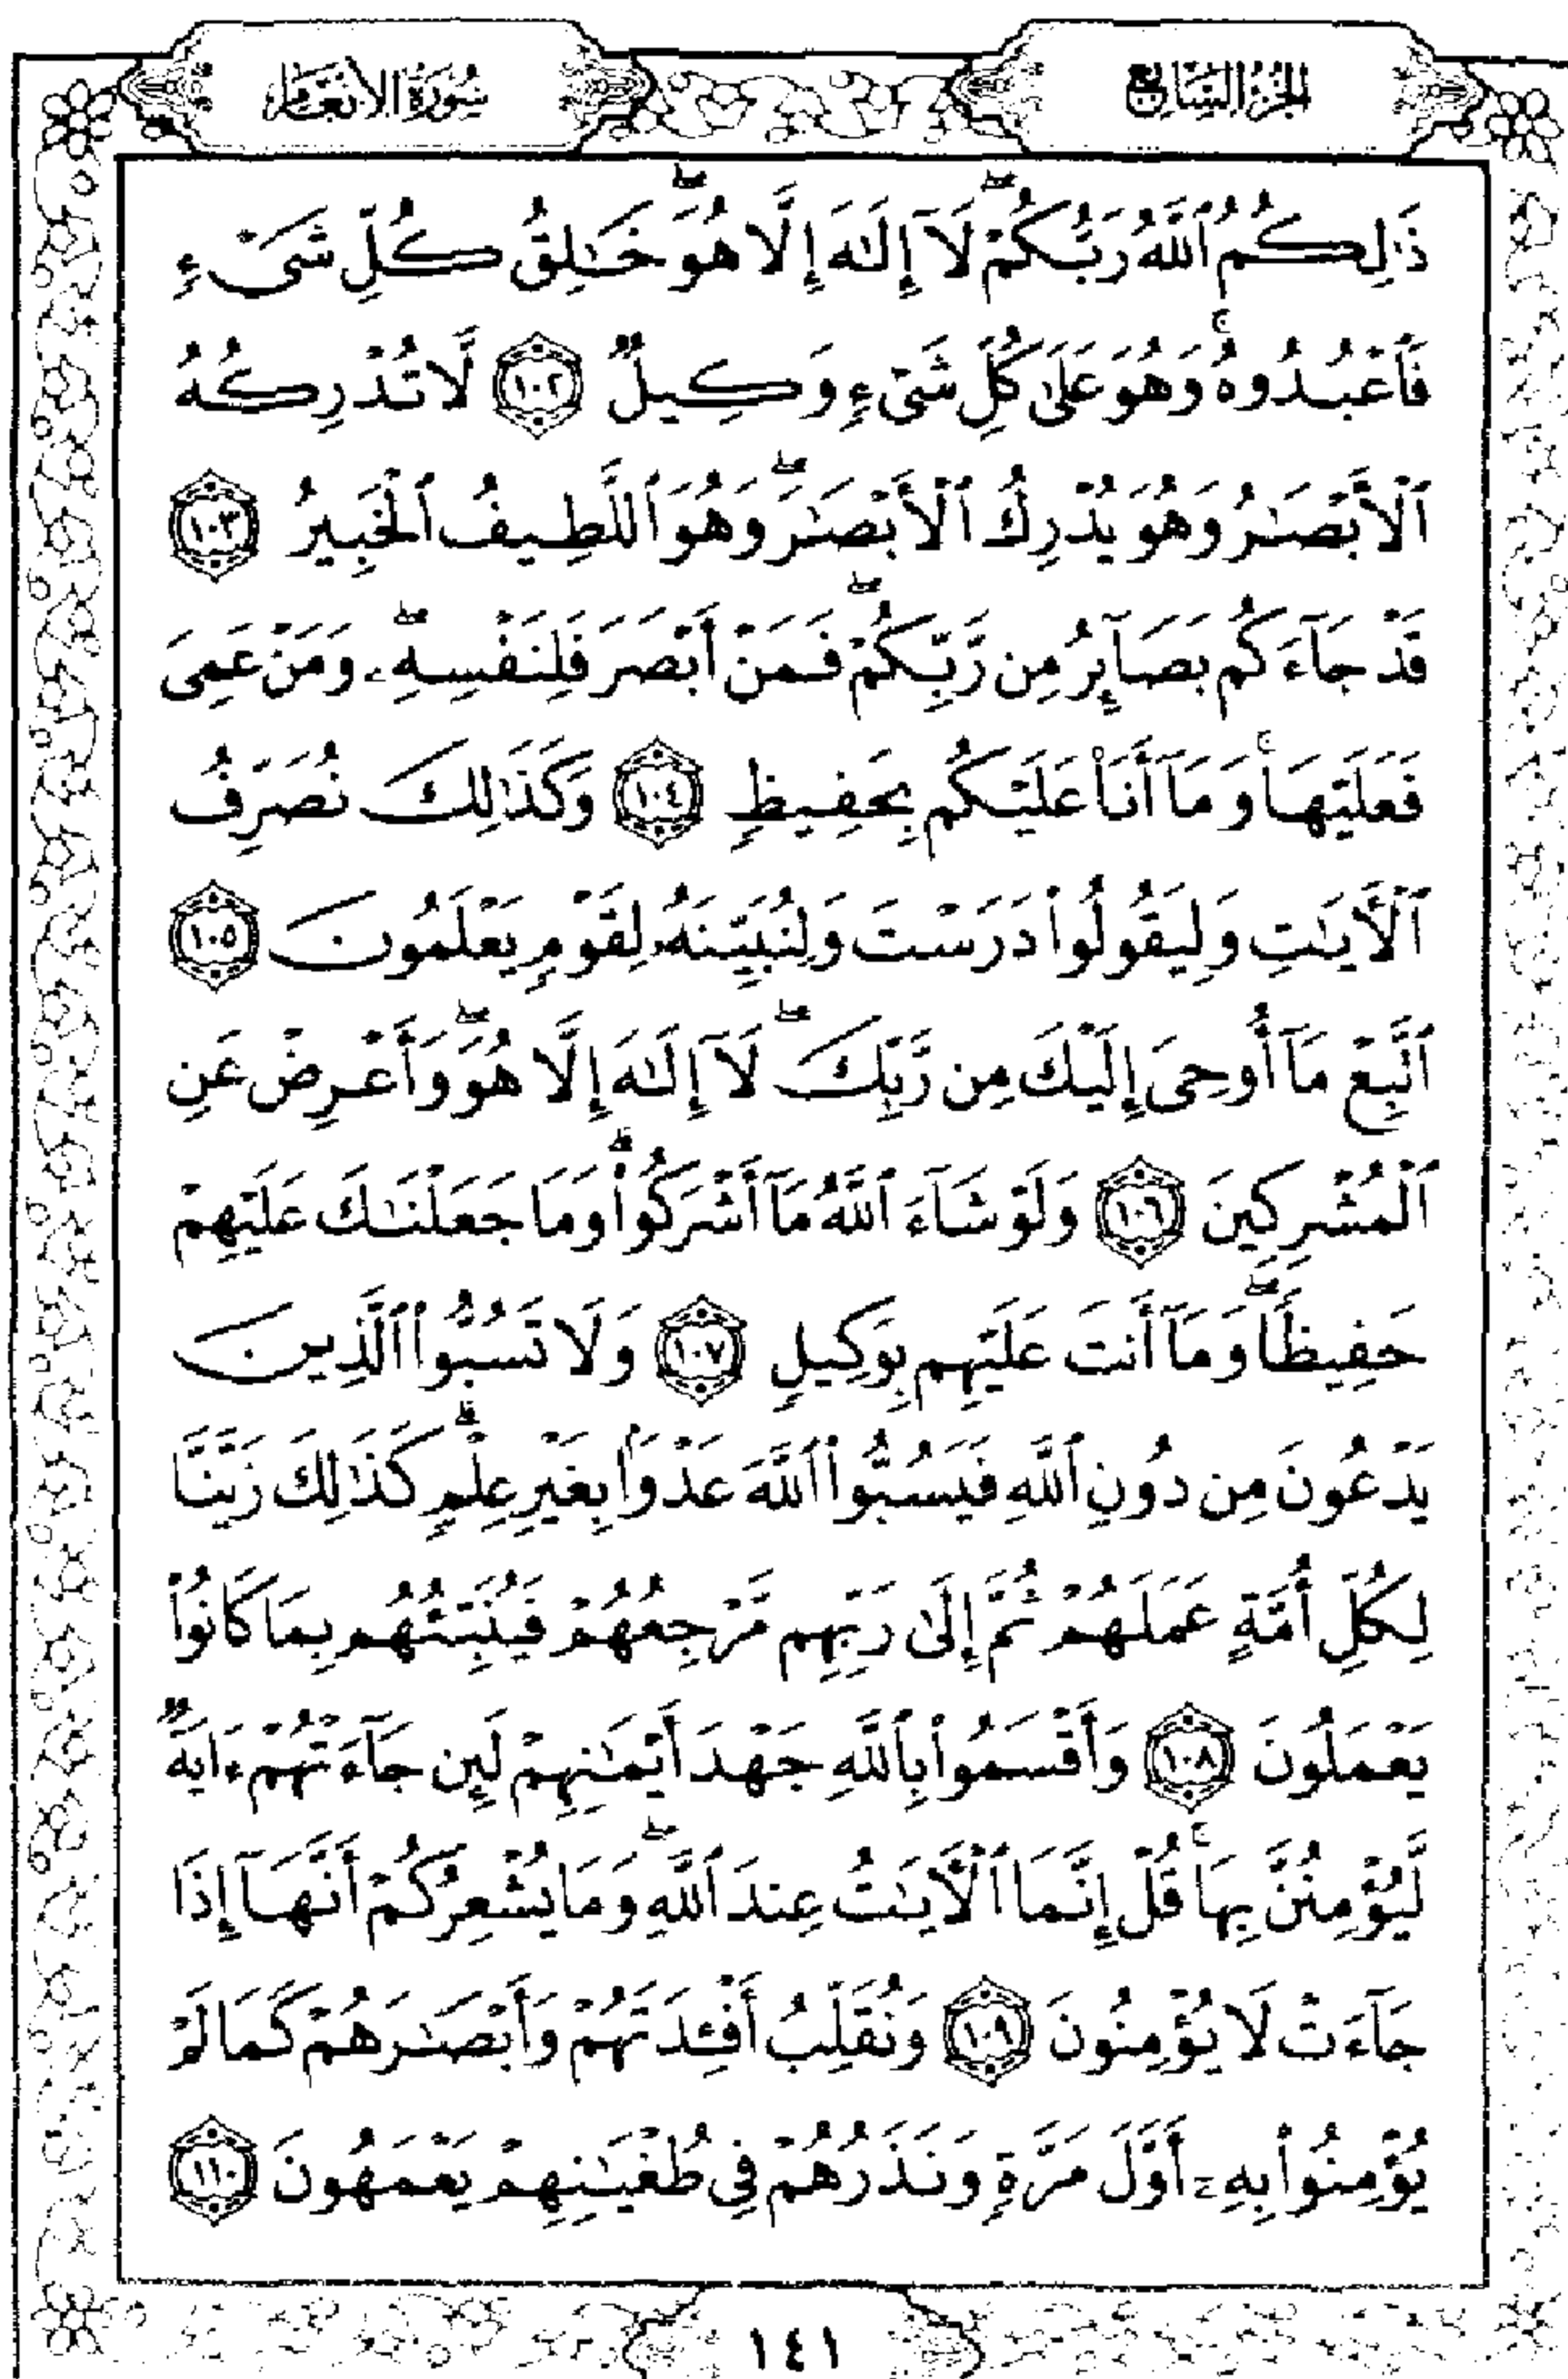 الجزء السابع
سورة الأنعام
ذَٰلِكُمُ ٱللَّهُ رَبُّكُمْ ۖ لَآ إِلَٰهَ إِلَّا هُوَ ۖ خَٰلِقُ كُلِّ شَىْءٍ
فَٱعْبُدُوهُ ۚ وَهُوَ عَلَىٰ كُلِّ شَىْءٍ وَكِيلٌ ۝١٠٢ لَّا تُدْرِكُهُ
ٱلْأَبْصَٰرُ وَهُوَ يُدْرِكُ ٱلْأَبْصَٰرَ ۖ وَهُوَ ٱللَّطِيفُ ٱلْخَبِيرُ ۝١٠٣
قَدْ جَآءَكُم بَصَآئِرُ مِن رَّبِّكُمْ ۖ فَمَنْ أَبْصَرَ فَلِنَفْسِهِۦ ۖ وَمَنْ عَمِىَ
فَعَلَيْهَا ۚ وَمَآ أَنَا۠ عَلَيْكُم بِحَفِيظٍ ۝١٠٤ وَكَذَٰلِكَ نُصَرِّفُ
ٱلْـَٔايَٰتِ وَلِيَقُولُوا۟ دَرَسْتَ وَلِنُبَيِّنَهُۥ لِقَوْمٍ يَعْلَمُونَ ۝١٠٥
ٱتَّبِعْ مَآ أُوحِىَ إِلَيْكَ مِن رَّبِّكَ ۖ لَآ إِلَٰهَ إِلَّا هُوَ ۖ وَأَعْرِضْ عَنِ
ٱلْمُشْرِكِينَ ۝١٠٦ وَلَوْ شَآءَ ٱللَّهُ مَآ أَشْرَكُوا۟ ۗ وَمَا جَعَلْنَٰكَ عَلَيْهِمْ
حَفِيظًا ۖ وَمَآ أَنتَ عَلَيْهِم بِوَكِيلٍ ۝١٠٧ وَلَا تَسُبُّوا۟ ٱلَّذِينَ
يَدْعُونَ مِن دُونِ ٱللَّهِ فَيَسُبُّوا۟ ٱللَّهَ عَدْوًۢا بِغَيْرِ عِلْمٍ ۗ كَذَٰلِكَ زَيَّنَّا
لِكُلِّ أُمَّةٍ عَمَلَهُمْ ثُمَّ إِلَىٰ رَبِّهِم مَّرْجِعُهُمْ فَيُنَبِّئُهُم بِمَا كَانُوا۟
يَعْمَلُونَ ۝١٠٨ وَأَقْسَمُوا۟ بِٱللَّهِ جَهْدَ أَيْمَٰنِهِمْ لَئِن جَآءَتْهُمْ ءَايَةٌ
لَّيُؤْمِنُنَّ بِهَا ۚ قُلْ إِنَّمَا ٱلْـَٔايَٰتُ عِندَ ٱللَّهِ ۖ وَمَا يُشْعِرُكُمْ أَنَّهَآ إِذَا
جَآءَتْ لَا يُؤْمِنُونَ ۝١٠٩ وَنُقَلِّبُ أَفْـِٔدَتَهُمْ وَأَبْصَٰرَهُمْ كَمَا لَمْ
يُؤْمِنُوا۟ بِهِۦٓ أَوَّلَ مَرَّةٍ وَنَذَرُهُمْ فِى طُغْيَٰنِهِمْ يَعْمَهُونَ ۝١١٠
١٤١